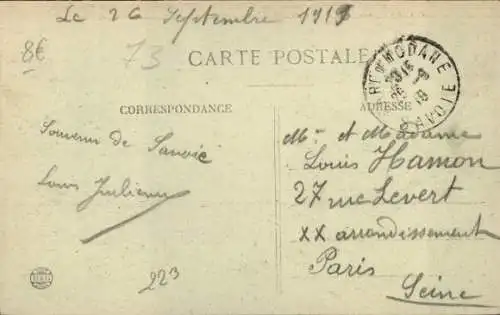 Le 26 Septembre 1919
8€
73
CARTE POSTALE
MODANE
SAVOIE
CORRESPONDANCE
ADRESSE
Souvenir de Savoie
Louis Julienne
Mr. et Madame
Louis Hamon
27 rue Levert
XX arrondissement
Paris
Seine
223